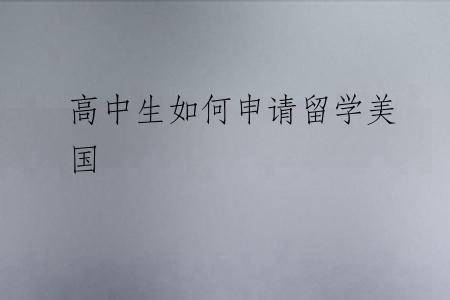 高中生如何申请留学美
国